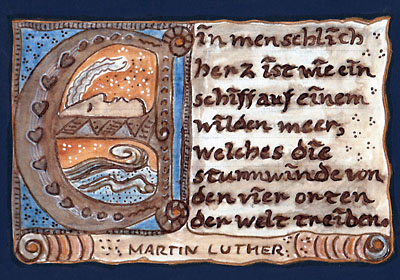 Ein menschlich
herz ist wie ein
schiff auf einem
wilden meer,
welches die
sturmwinde von
den vier orten
der welt treiben.
MARTIN LUTHER